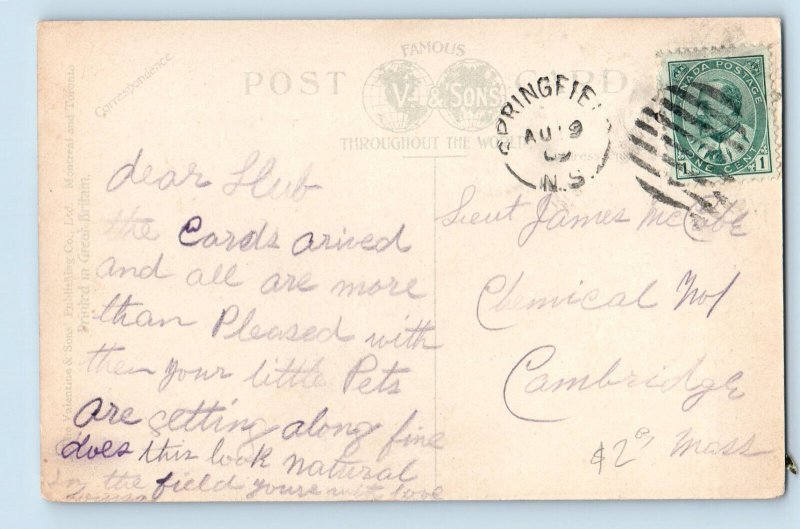 FAMOUS
POST CARD
V & SONS
THROUGHOUT THE WORLD
Correspondence
Valentine & Sons Publishing Co., Ltd. Montreal and Toronto
Printed in Great Britain.
SPRINGFIEL
AU 9
09
N.S.
CANADA POSTAGE
1 ONE CENT 1
dear Hub
the Cards arived
and all are more
than Pleased with
them your little Pets
are getting along fine
does this look natural
In the field yours with love
Lieut James McCabe
Chemical No 1
Cambridge
Mass
$2